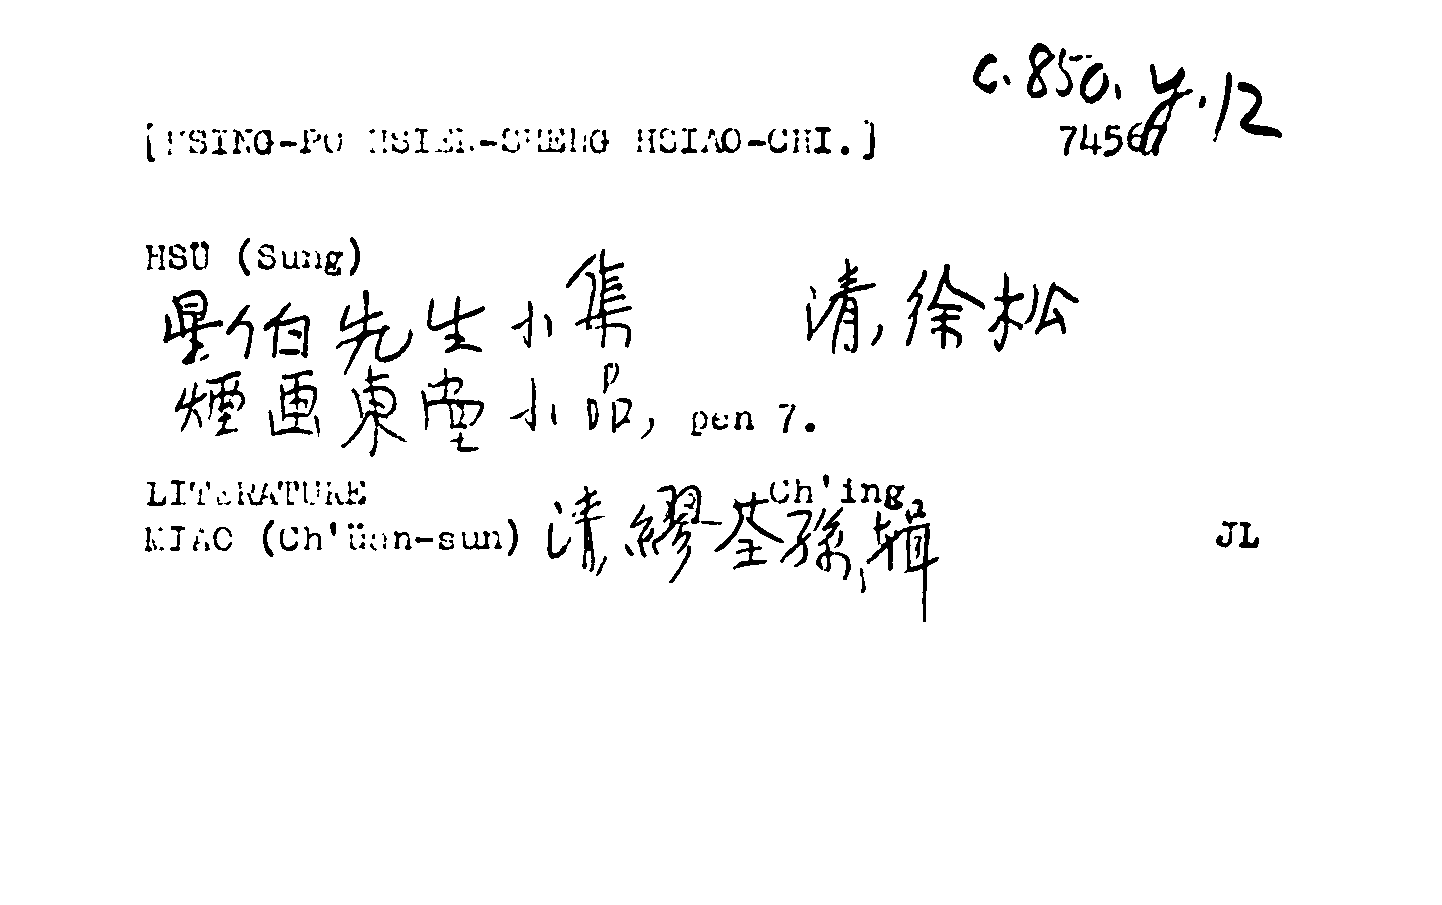 c.850.y.12
[HSING-PO HSIEN-SHENG HSIAO-CHI.] 7456
HSÜ (Sung)
星伯先生小集 清,徐松
煙画東堂小品, pen 7.
LITERATURE Ch'ing.
MIAO (Ch'üan-sun) 清,繆荃孫,輯 JL